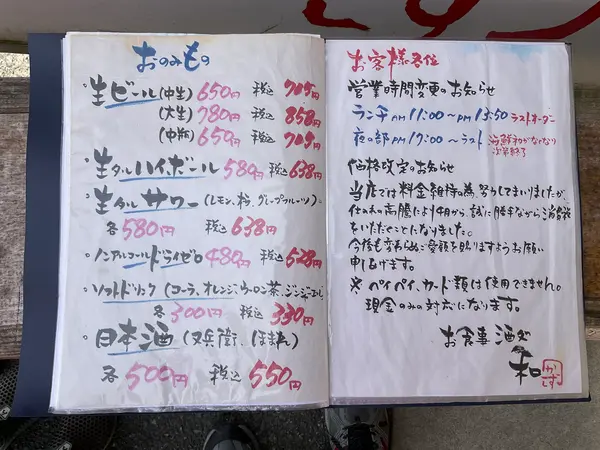 おのみもの
・生ビール(中生) 650円 税込 705円
(大生) 780円 税込 858円
(中瓶) 650円 税込 705円
・生ダルハイボール 580円 税込 638円
生ダルサワー (レモン、グレープフルーツ)
各 580円 税込 638円
・ノンアルコールドライゼロ 480円 税込 528円
・ソフトドリンク (コーラ、オレンジ、ウーロン茶、ジンジャエール)
各 300円 税込 330円
・日本酒 (又兵衛、ほまれ)
各 500円 税込 550円
お客様各位
営業時間変更のお知らせ
ランチ AM 11:00 〜 PM 13:50 ラストオーダー
夜の部 PM 17:00 〜 ラスト 海鮮ネタがなくなり
次第終了
価格改定のお知らせ
当店では料金維持の為、努力してまいりましたが、
仕入れの高騰により4月から、誠に勝手ながら
をいただくことになりました。
今後も変わらぬご愛顧を賜りますようお願い
申しあげます。
※ ペイペイ、カード類は使用できません。
現金のみの対応になります。
お食事 酒処
和 かず